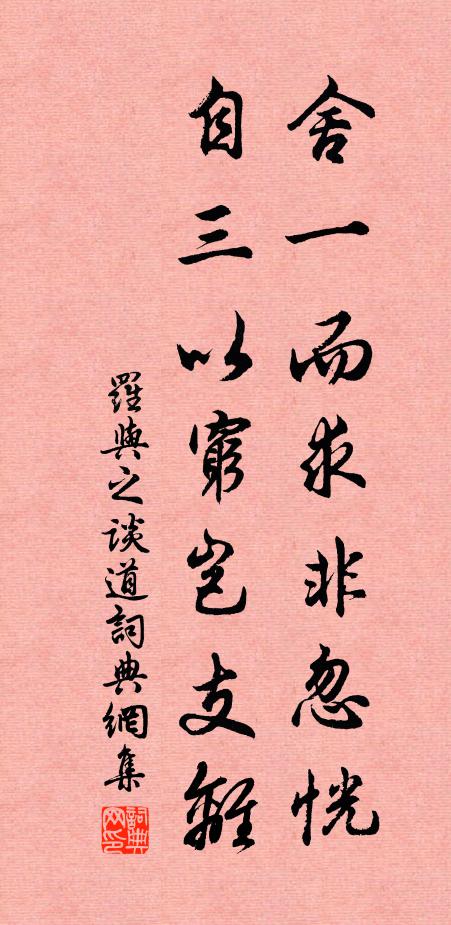 舍一而求非忽恍
自三以窮豈支離
羅與之談道詞典網集
詞典网印